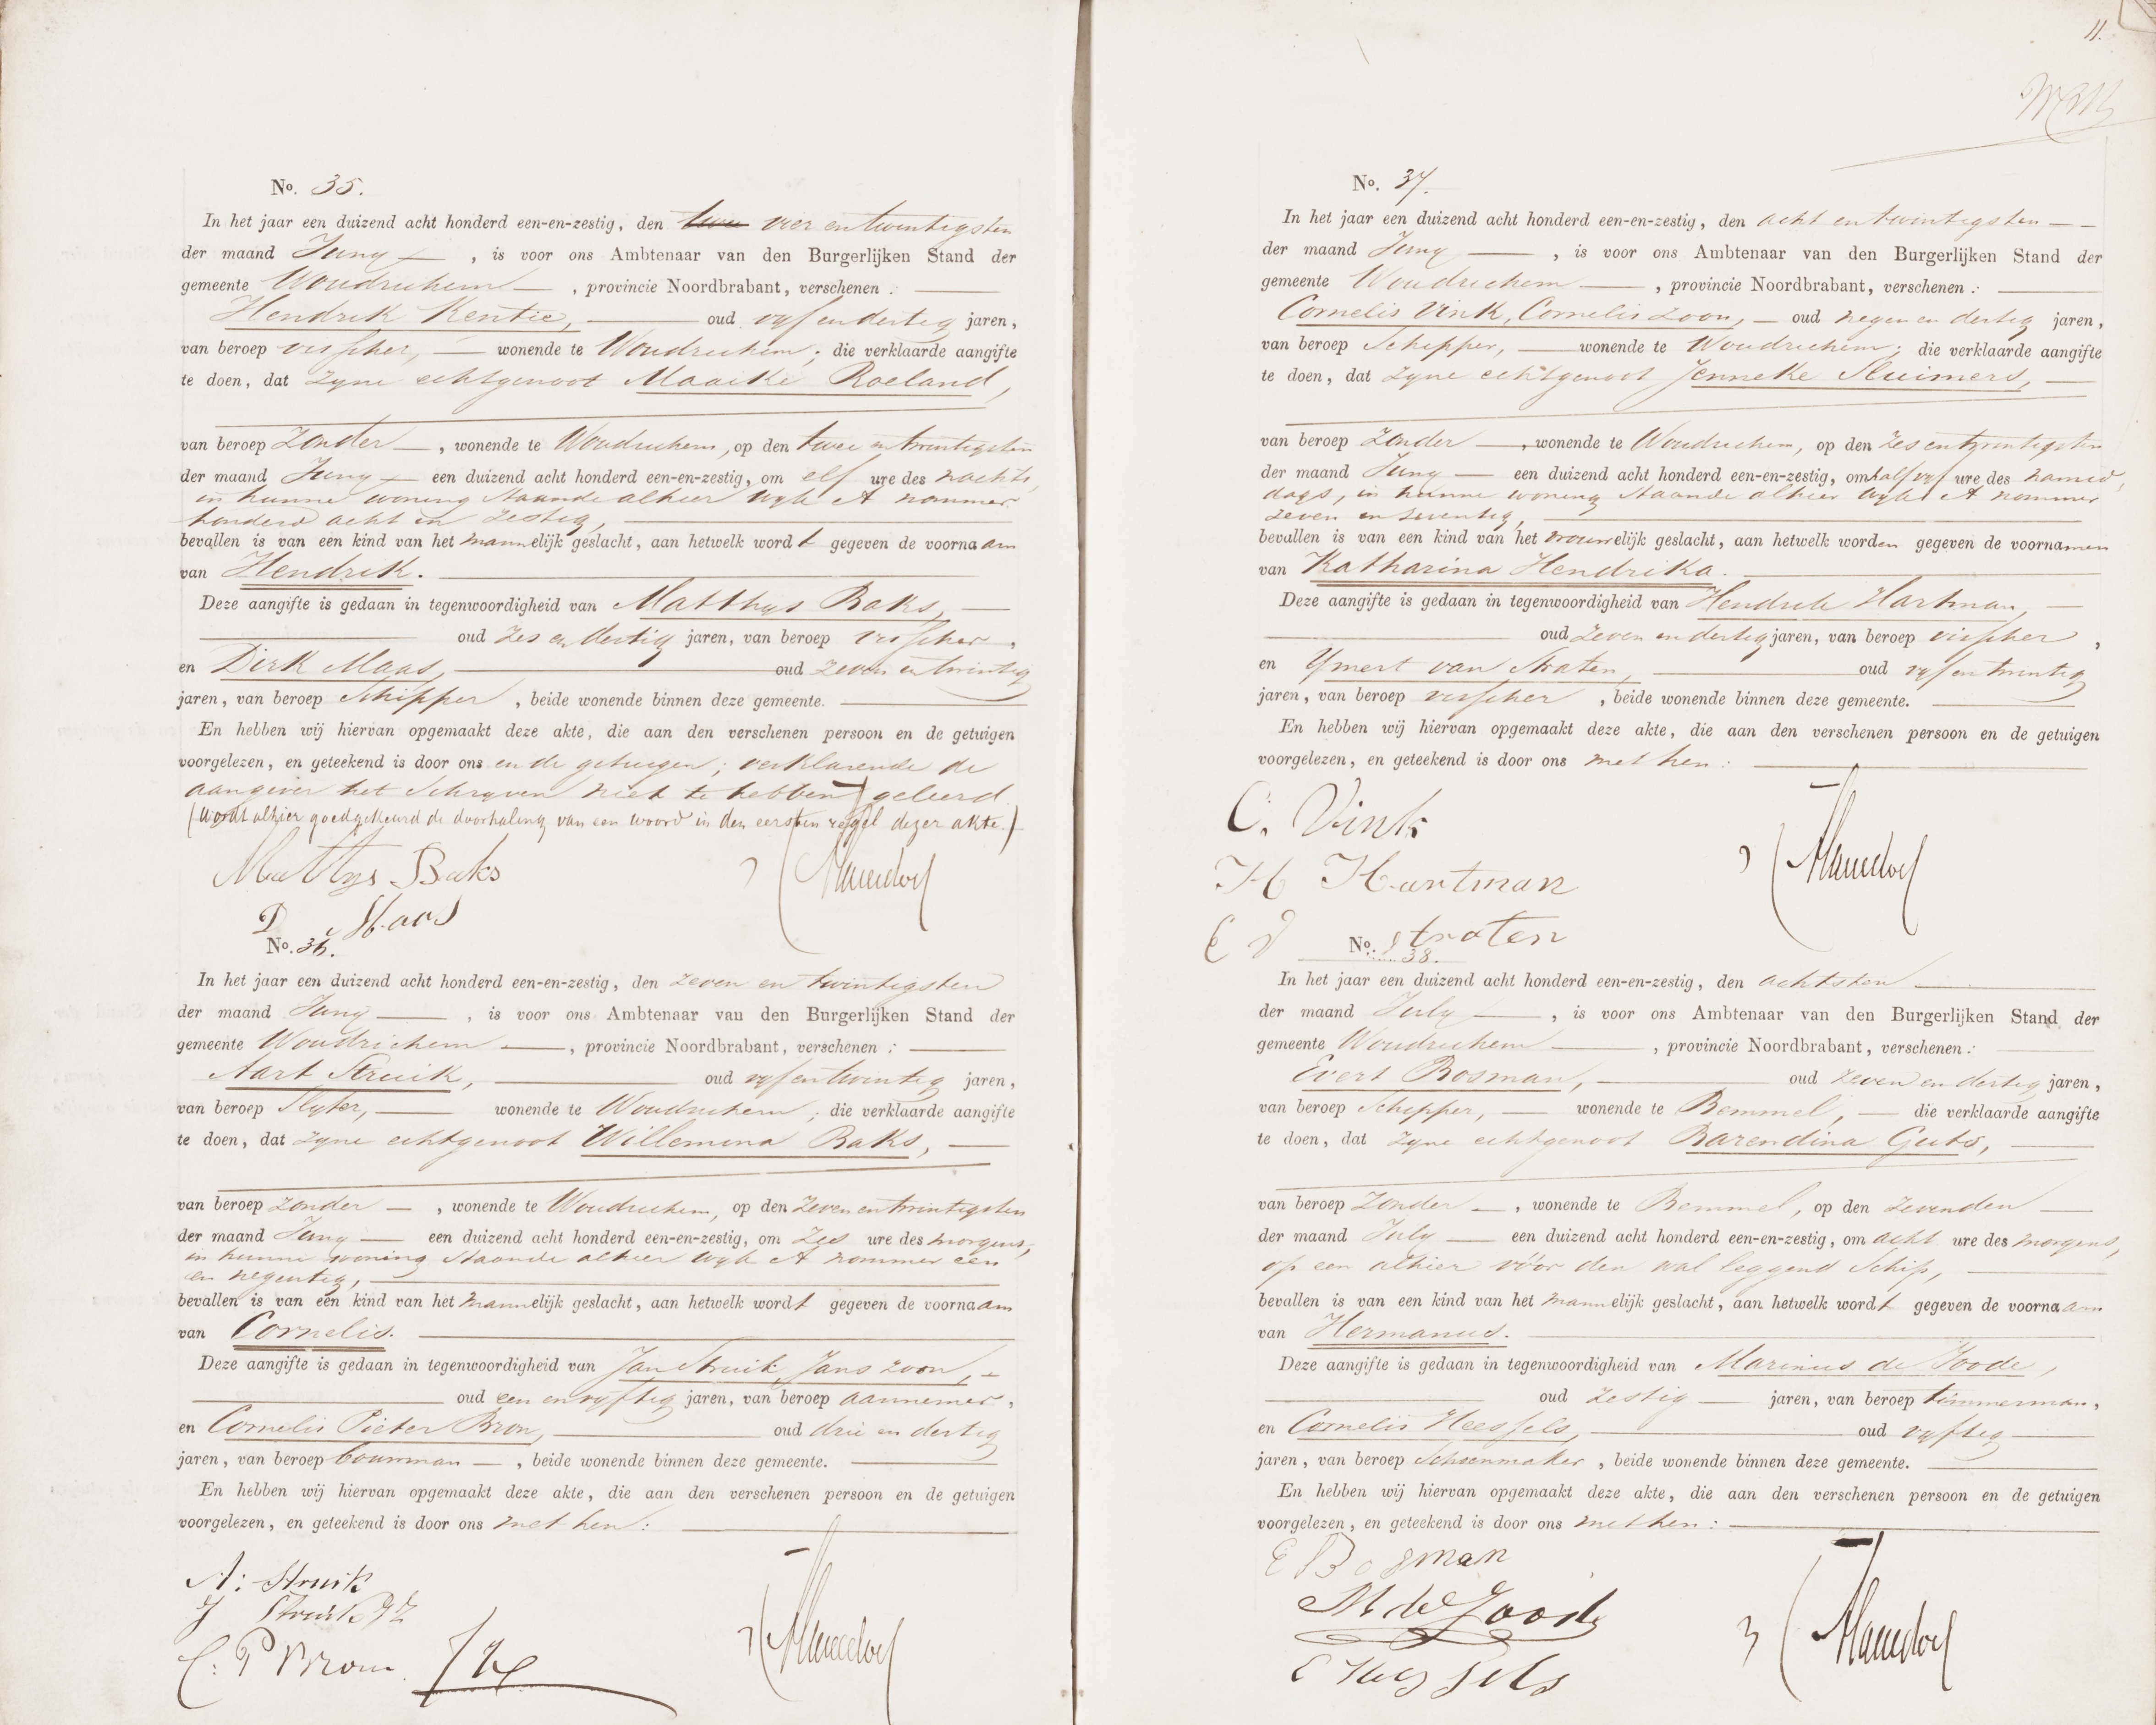 No. 35.
In het jaar een duizend acht honderd een-en-zestig, den twee vier en twintigsten
der maand Juny, is voor ons Ambtenaar van den Burgerlijken Stand der
gemeente Woudrichem, provincie Noordbrabant, verschenen:
Hendrik Kentie, oud vyf en dertig jaren,
van beroep visscher, wonende te Woudrichem; die verklaarde aangifte
te doen, dat zyne echtgenoot Maaike Roeland,
van beroep zonder, wonende te Woudrichem, op den twee en twintigsten
der maand Juny een duizend acht honderd een-en-zestig, om elf ure des nachts,
in hunne woning staande alhier wyk A nommer
honderd acht en zestig,
bevallen is van een kind van het mannelijk geslacht, aan hetwelk wordt gegeven de voornaam
van Hendrik.
Deze aangifte is gedaan in tegenwoordigheid van Matthys Baks,
oud zes en dertig jaren, van beroep visscher,
en Dirk Maas, oud zeven en twintig
jaren, van beroep Schipper, beide wonende binnen deze gemeente.
En hebben wij hiervan opgemaakt deze akte, die aan den verschenen persoon en de getuigen
voorgelezen, en geteekend is door ons en de getuigen; verklarende de
aangever het Schryven niet te hebben geleerd
(Wordt alhier goedgekeurd de doorhaling van een woord in den eersten regel dezer akte.)
Mattys Baks
D Maas
No. 36.
In het jaar een duizend acht honderd een-en-zestig, den zeven en twintigsten
der maand Juny, is voor ons Ambtenaar van den Burgerlijken Stand der
gemeente Woudrichem, provincie Noordbrabant, verschenen:
Aart Struik, oud vyf en twintig jaren,
van beroep Slyter, wonende te Woudrichem; die verklaarde aangifte
te doen, dat zyne echtgenoot Willemina Baks,
van beroep zonder, wonende te Woudrichem, op den zeven en twintigsten
der maand Juny een duizend acht honderd een-en-zestig, om zes ure des morgens,
in hunne woning staande alhier wyk A nommer een
en negentig,
bevallen is van een kind van het mannelijk geslacht, aan hetwelk wordt gegeven de voornaam
van Cornelis.
Deze aangifte is gedaan in tegenwoordigheid van Jan Struik, Jans zoon,
oud een en vyftig jaren, van beroep aannemer,
en Cornelis Pieter Bron, oud drie en dertig
jaren, van beroep bouwman, beide wonende binnen deze gemeente.
En hebben wij hiervan opgemaakt deze akte, die aan den verschenen persoon en de getuigen
voorgelezen, en geteekend is door ons met hen:
A: Struik
J Struik JZ
C: P Bron
11.
No. 37.
In het jaar een duizend acht honderd een-en-zestig, den acht en twintigsten
der maand Juny, is voor ons Ambtenaar van den Burgerlijken Stand der
gemeente Woudrichem, provincie Noordbrabant, verschenen:
Cornelis Vink, Cornelis zoon, oud negen en dertig jaren,
van beroep Schipper, wonende te Woudrichem; die verklaarde aangifte
te doen, dat zyne echtgenoot Jenneke Sluimers,
van beroep zonder, wonende te Woudrichem, op den zes en twintigsten
der maand Juny een duizend acht honderd een-en-zestig, om half vyf ure des namid,
dags, in hunne woning staande alhier wyk A nommer
zeven en zeventig,
bevallen is van een kind van het vrouwelijk geslacht, aan hetwelk worden gegeven de voornamen
van Katharina Hendrika.
Deze aangifte is gedaan in tegenwoordigheid van Hendrik Hartman,
oud zeven en dertig jaren, van beroep visscher,
en Ymert van Straten, oud vyf en twintig
jaren, van beroep visscher, beide wonende binnen deze gemeente.
En hebben wij hiervan opgemaakt deze akte, die aan den verschenen persoon en de getuigen
voorgelezen, en geteekend is door ons met hen:
C. Vink
H Hartman
E V Straten
No. 38.
In het jaar een duizend acht honderd een-en-zestig, den achtsten
der maand July, is voor ons Ambtenaar van den Burgerlijken Stand der
gemeente Woudrichem, provincie Noordbrabant, verschenen:
Evert Bosman, oud zeven en dertig jaren,
van beroep Schipper, wonende te Bemmel, die verklaarde aangifte
te doen, dat zyne echtgenoot Barendina Guts,
van beroep zonder, wonende te Bemmel, op den zevenden
der maand July een duizend acht honderd een-en-zestig, om acht ure des morgens,
op een alhier vóór den wal leggend Schip,
bevallen is van een kind van het mannelijk geslacht, aan hetwelk wordt gegeven de voornaam
van Hermanus.
Deze aangifte is gedaan in tegenwoordigheid van Marinus de Joode,
oud zestig jaren, van beroep timmerman,
en Cornelis Heessels, oud vyftig
jaren, van beroep Schoenmaker, beide wonende binnen deze gemeente.
En hebben wij hiervan opgemaakt deze akte, die aan den verschenen persoon en de getuigen
voorgelezen, en geteekend is door ons met hen:
E Bosman
M de Joode
C Heessels